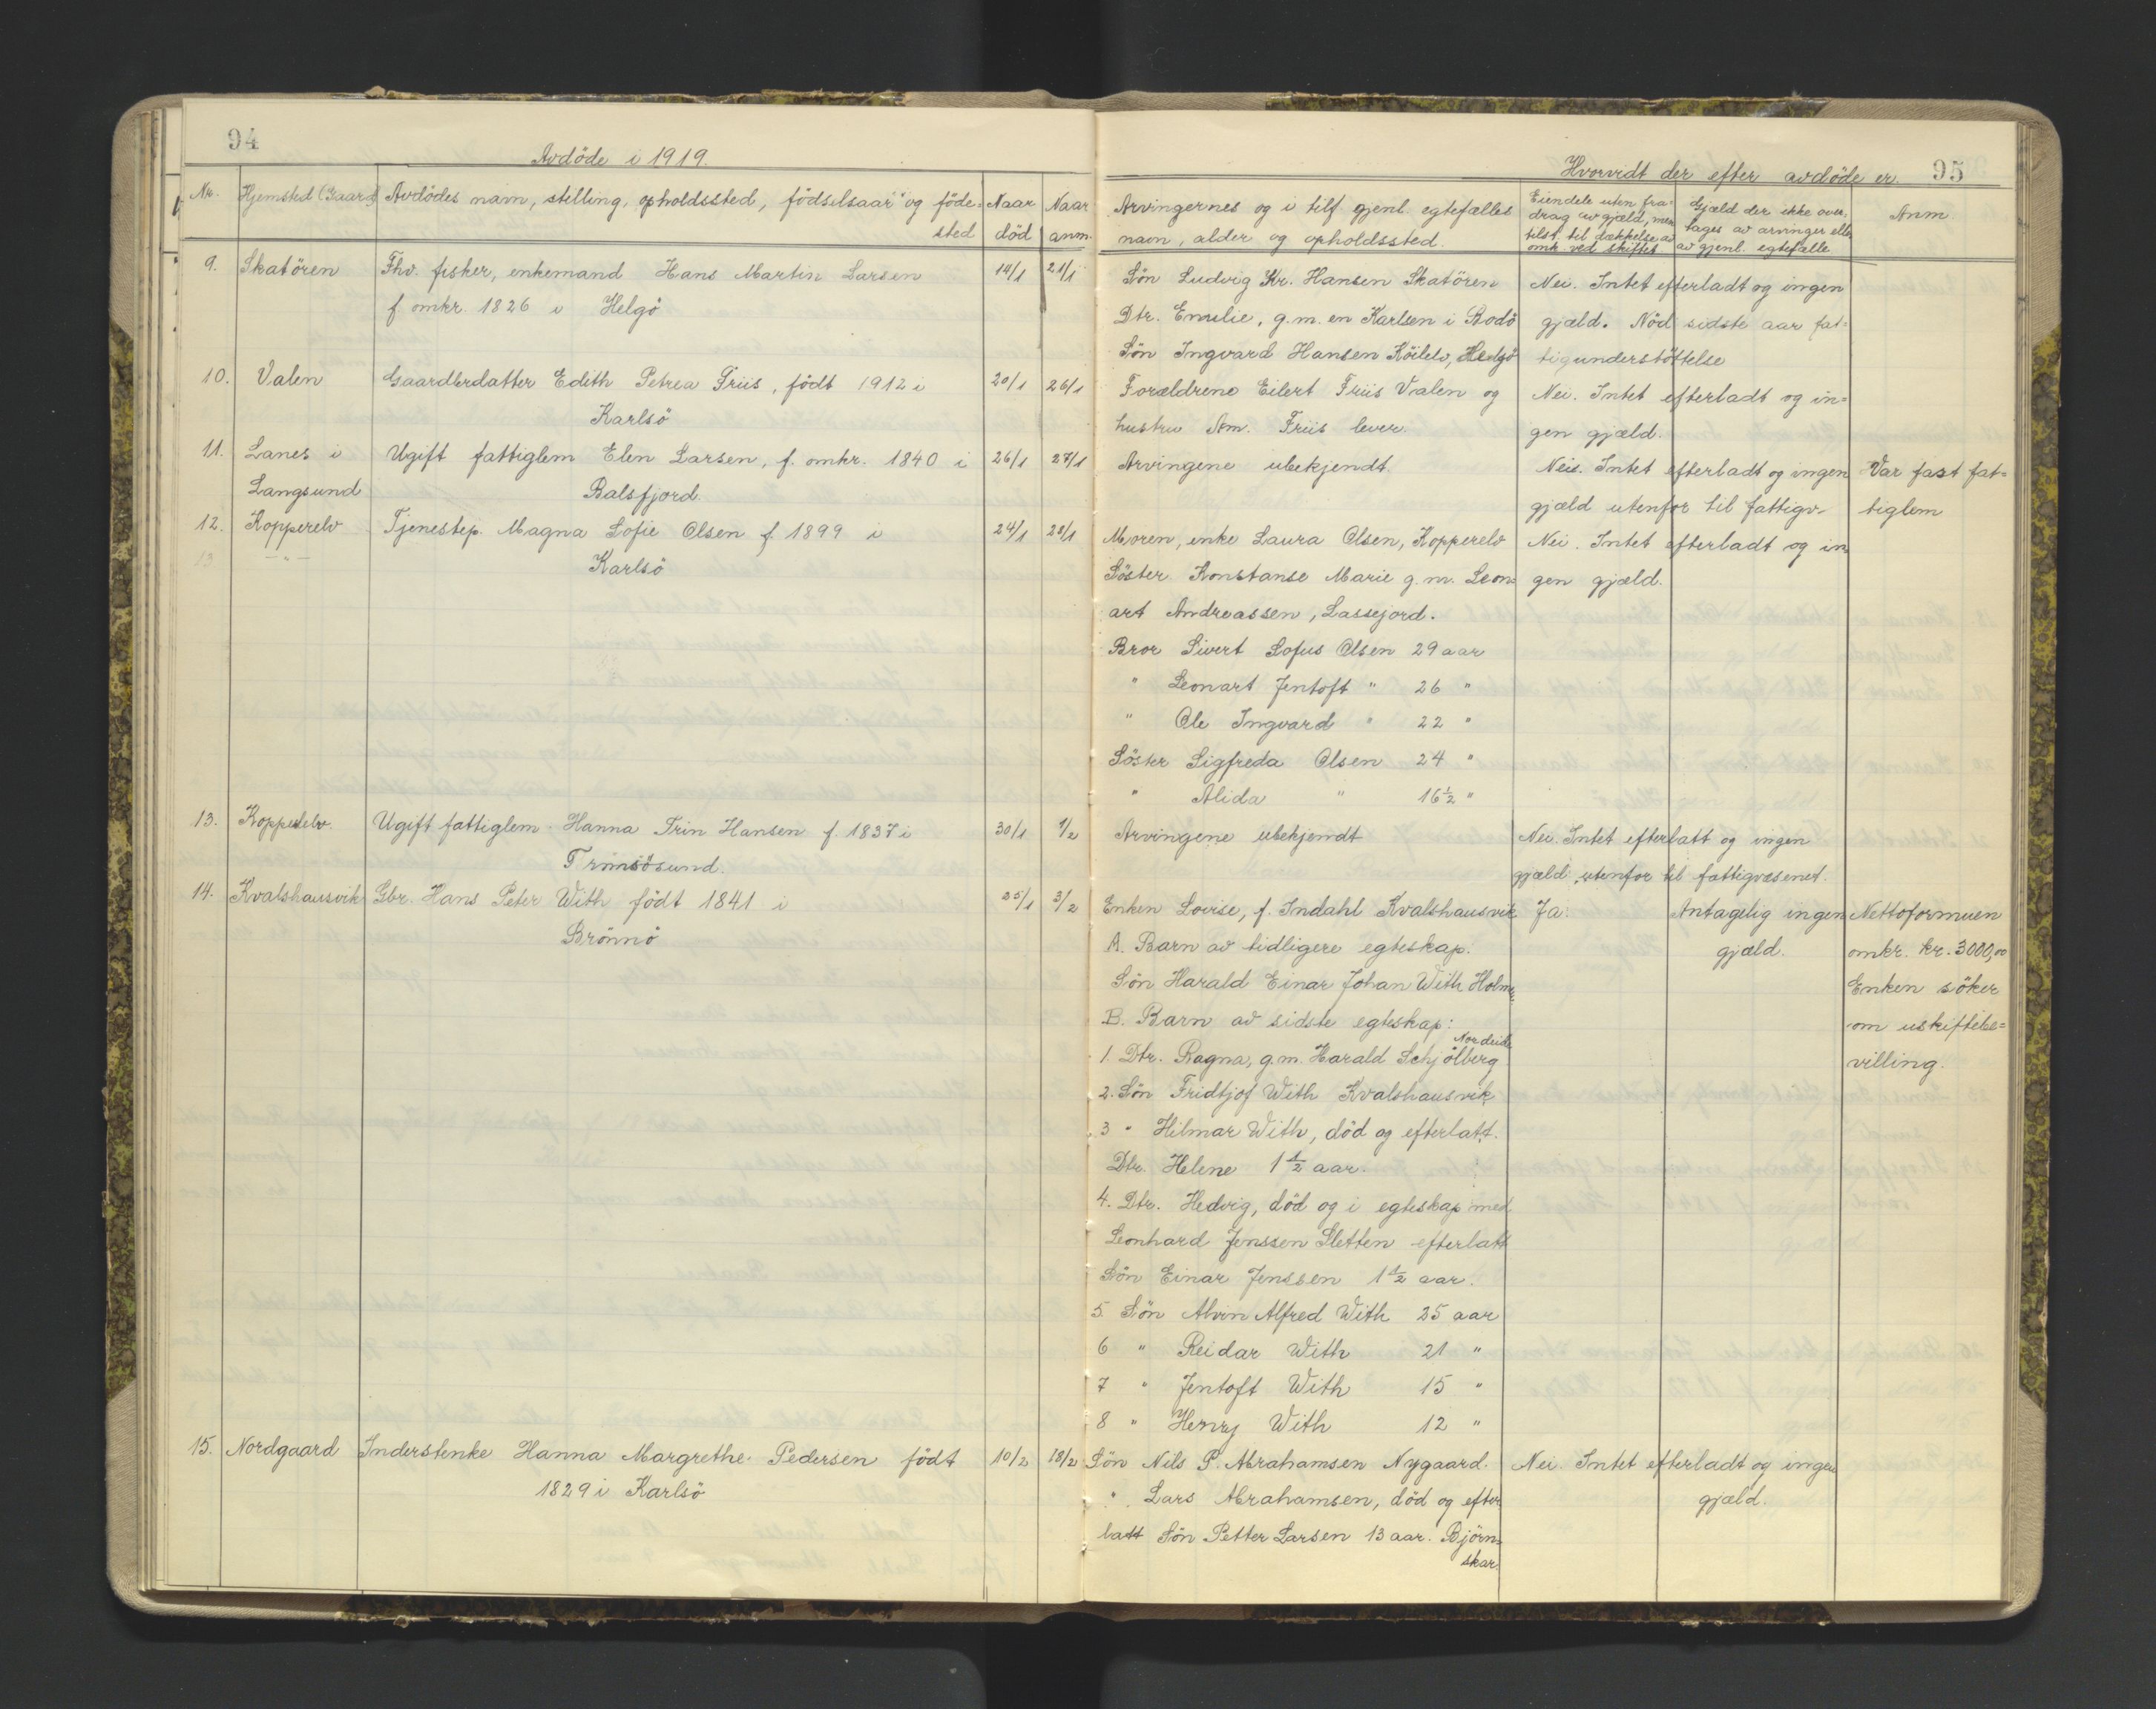 94
Avdöde i 1919.
Nr. Hjemsted (Gaard) Avdödes navn, stilling, opholdssted, födselsaar og föde= Naar Naar
sted död anm.
9. Skatören Fhv. fisker, enkemand Hans Martin Larsen 14/1 21/1
f omkr. 1826 i Helgö
10. Valen Gaardbrdatter Edith Petrea Friis, födt 1912 i 20/1 26/1
Karlsö
11. Lanes i Ugift fattiglem Elen Larsen, f. omkr. 1840 i 26/1 27/1
Langsund Balsfjord.
12. Kopperelv Tjenestep. Magna Sofie Olsen f. 1899 i 24/1 28/1
13 — " — Karlsö
13. Kopperelv. Ugift fattiglem. Hanna Trin Hansen f. 1837 i 30/1 1/2
Tromsösund.
14. Kvalshausvik Gbr. Hans Peter With födt 1841 i 25/1 3/2
Brönnö
15. Nordgaard Inderstenke Hanna Margrethe Pedersen födt 10/2 18/2
1829 i Karlsö
95
Hvorvidt der efter avdöde er.
Arvingernes og i tilf gjenl. egtefælles
navn, alder og opholdssted.
Eiendele uten fra=
drag av gjæld, men
tilst. til dækkelse av
omk. ved skiftet
Gjæld der ikke over,
tages av arvinger eller
av gjenl. egtefælle
Anm.
Sön Ludvig Kr. Hansen Skatören Nei. Intet efterladt og ingen
Dtr. Emilie, g.m. en Karlsen i Bodö gjæld. Nöd sidste aar fat=
Sön Ingvard Hansen Helgö tigunderstöttelse
Forældrene Eilert Friis Valen og Nei. Intet efterladt og in=
hustru Am. Friis lever. gen gjæld.
Arvingene ubekjendt. Nei. Intet efterladt og ingen Var fast fat=
gjæld utenfor til fattigv- tiglem
Moren, enke Laura Olsen, Kopperelv Nei. Intet efterladt og in
Söster Konstanse Marie g.m. Leon= gen gjæld.
art Andreassen, Lassejord.
Bror Sivert Sofus Olsen 29 aar
" Leonart Jentoft " 26 "
" Ole Ingvard " 22 "
Söster Sigfreda Olsen 24 "
" Alida " 16 1/2 "
Arvingene ubekjendt Nei. Intet efterlatt og ingen
gjæld utenfor til fattigvæsenet.
Enken Lovise, f. Indahl Kvalshausvik Ja. Antagelig ingen Nettoformuen
A. Barn av tidligere egteskap: gjæld. omkr. kr. 3000,00
Sön Harald Einar Johan With Holme Enken söker
B. Barn av sidste egteskap: om uskiftebe=
Nordeide
1. Dtr. Ragna, g.m. Harald Schjölberg villing.
2. Sön Fridtjof With Kvalshausvik
3 " Hilmar With, död og efterlatt.
Dtr. Helene 1 1/2 aar.
4. Dtr. Hedvig, död og i egteskap med
Leonhard Jenssen Sletten efterlatt
Sön Einar Jenssen 1 1/2 aar.
5. Sön Alvin Alfred With 25 aar
6 " Reidar With 21 "
7 " Jentoft With 15 "
8 " Henry With 12 "
Sön Nils P. Abrahamsen Nygaard. Nei. Intet efterladt og ingen
" Lars Abrahamsen, död og efter gjæld.
latt Sön Petter Larsen 13 aar. Björn=
skar.